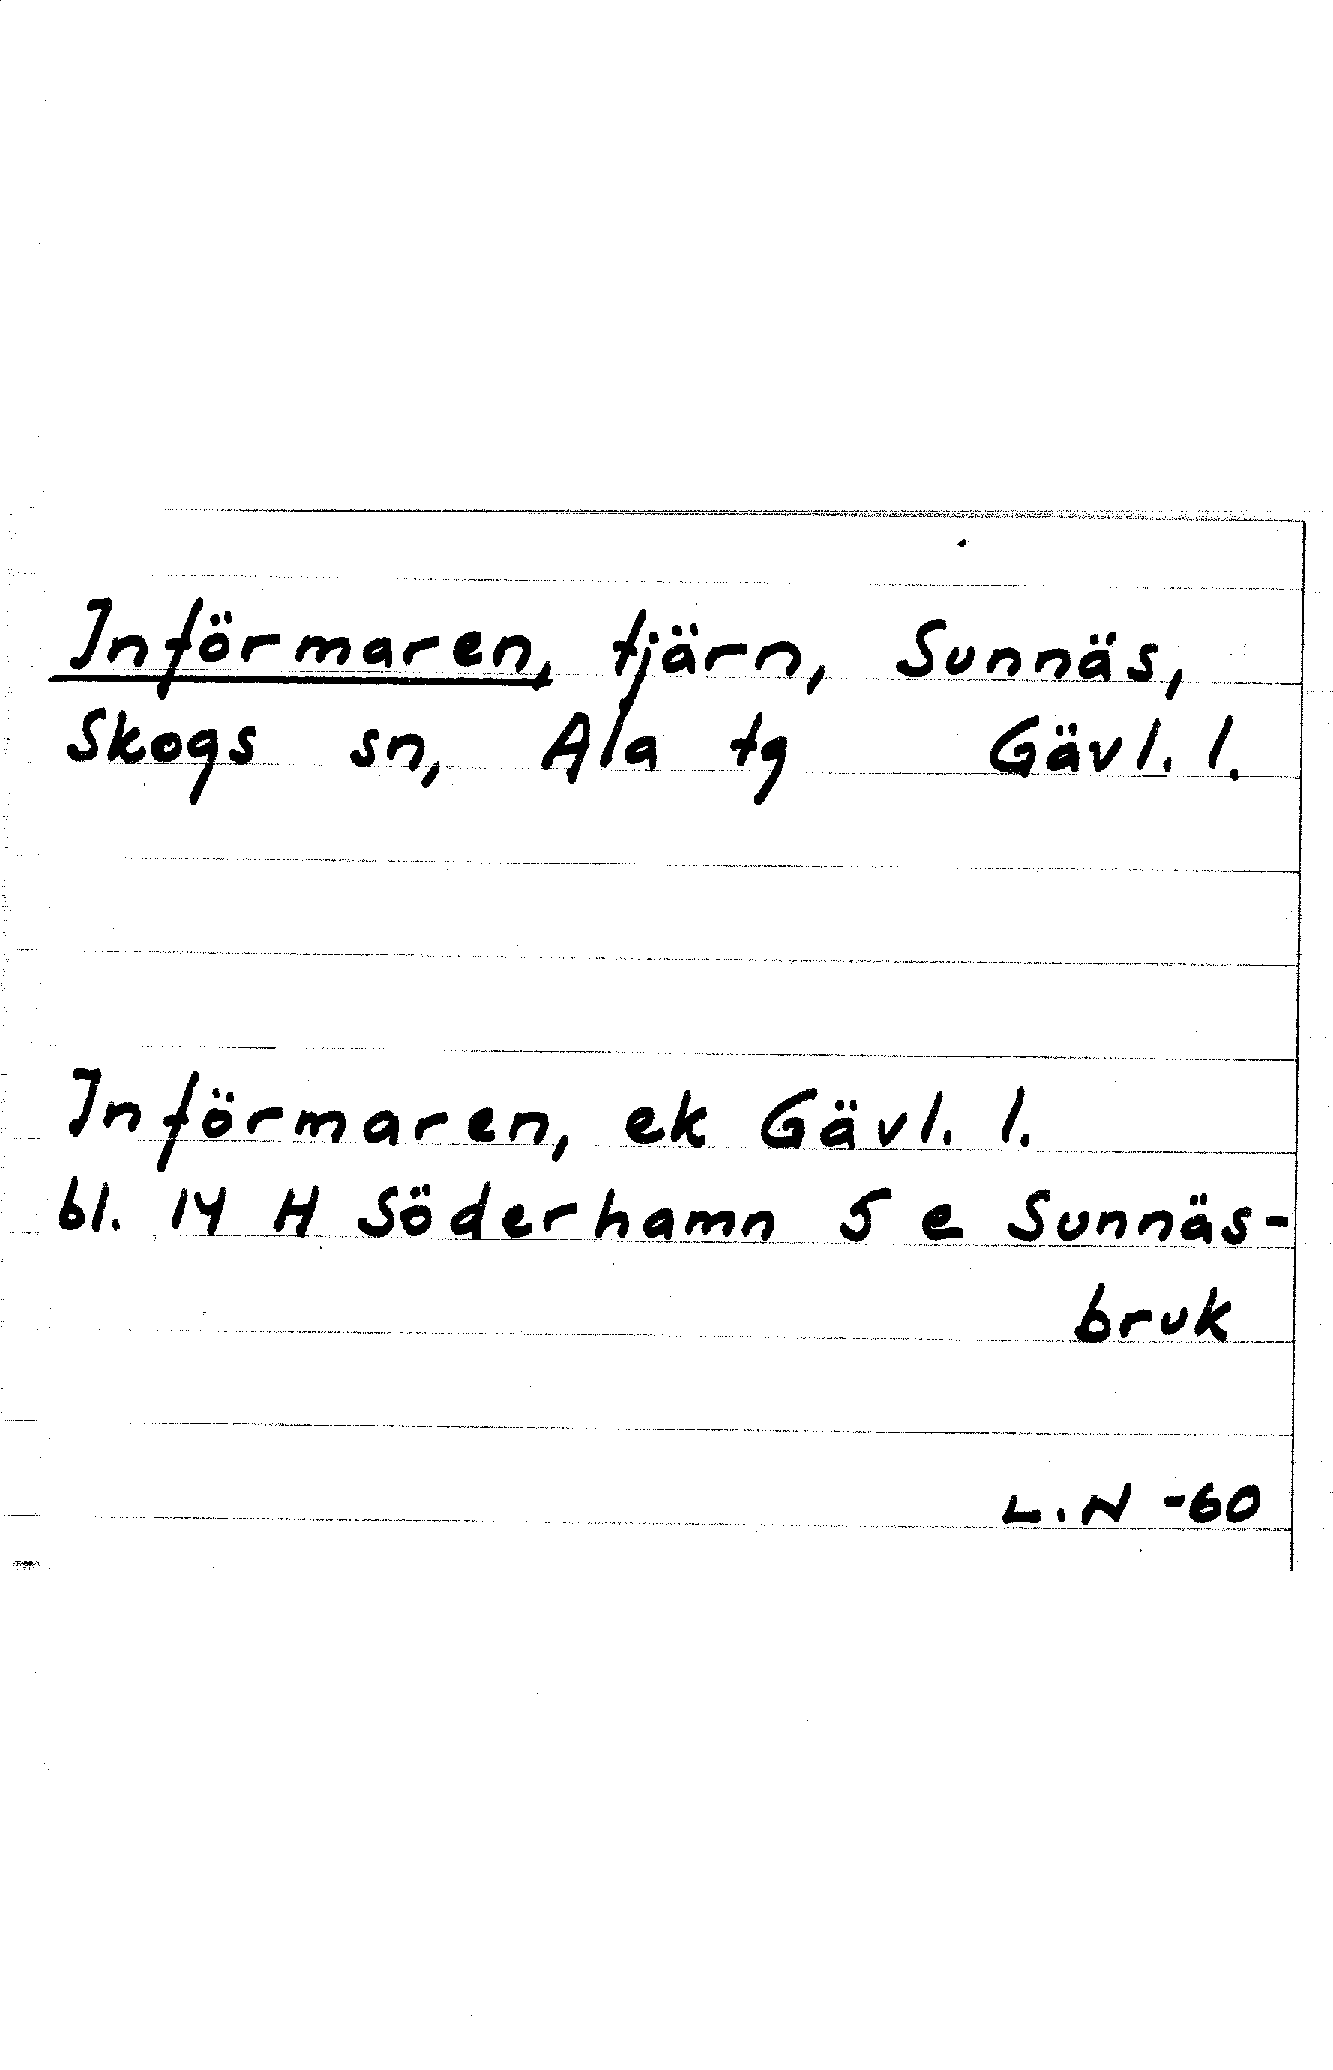 Införmaren, tjärn, Sunnäs,
Skogs sn, Ala tg Gävl. l.
Införmaren, ek Gävl. l.
bl. 14 H Söderhamn 5 e Sunnäs-
bruk
L.N -60